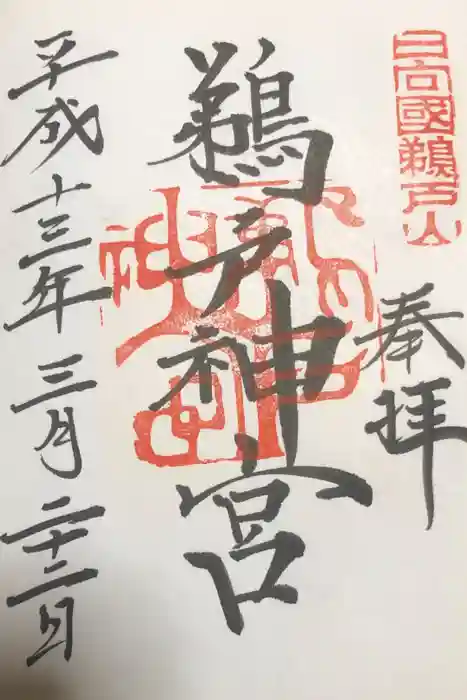 日向國鵜戸山
奉拝
鵜戸神宮
平成十三年三月二十二日